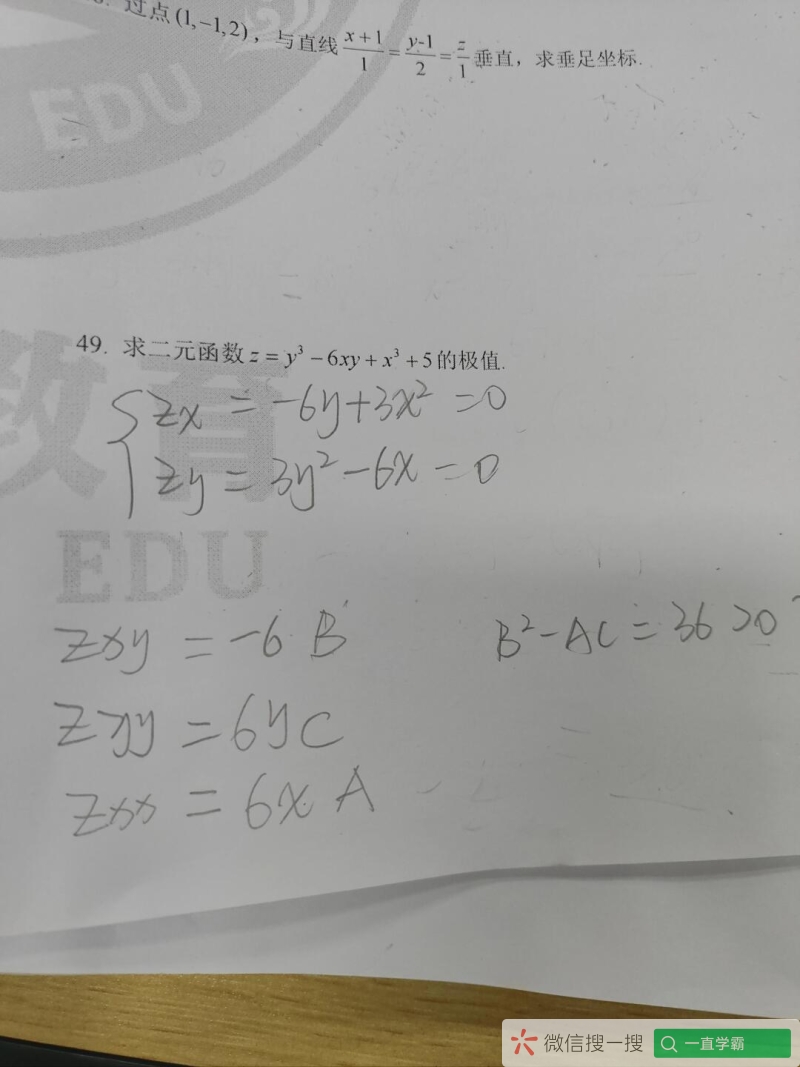 过点(1,−1,2)，与直线 (x+1)/1 = (y-1)/2 = z/1 垂直，求垂足坐标.
EDU
49. 求二元函数 z = y³ − 6xy + x³ + 5 的极值.
{ zx = -6y+3x² = 0
zy = 3y² - 6x = 0
教育
EDU
zxy = -6 B
B² - AC = 36 > 0
zyy = 6y C
zxx = 6x A
微信搜一搜 一直学霸